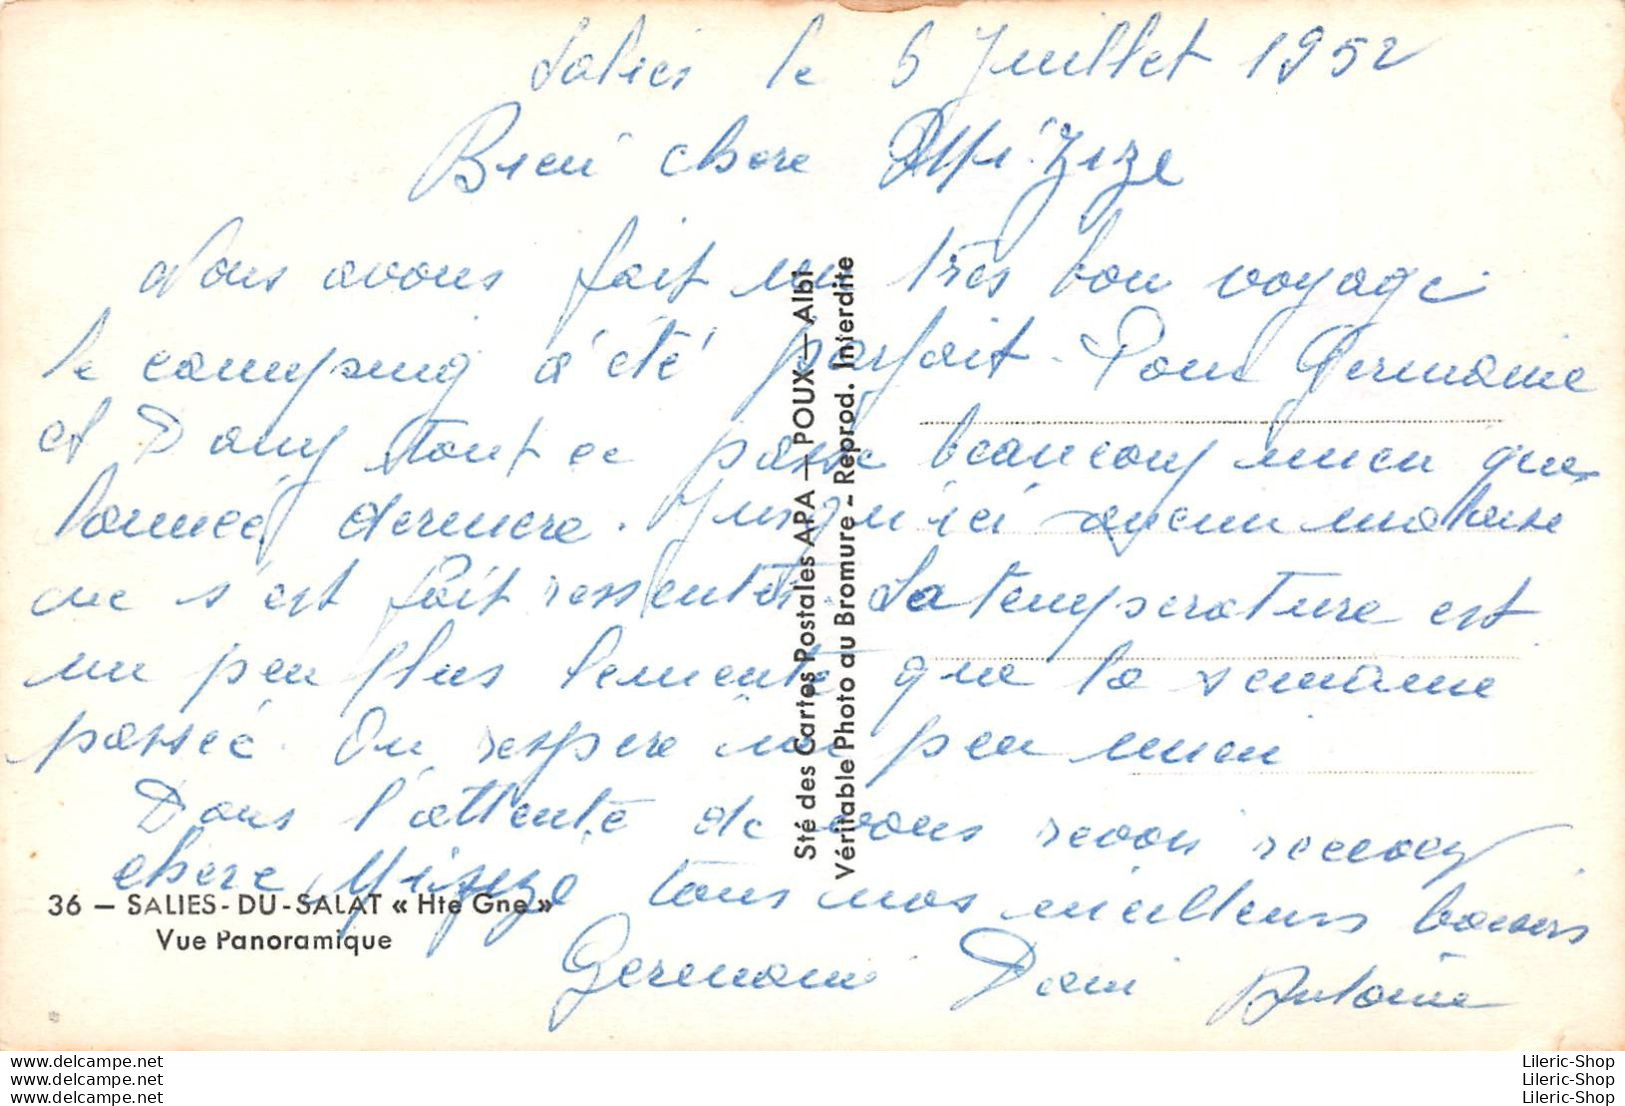 Salies le 5 Juillet 1952
Bien chère
Nous avons fait un très bon voyage
le camping a été parfait. Pour Germaine
et Dany tout ce passe beaucoup mieu que
l'année dernière. Jusqu'ici aucun malaise
ne s'est fait ressentir. La température est
un peu plus clemente que la semaine
passée. On respire un peu mieu
Dans l'attente de vous revoir recevez
chère Mizézé tous nos meilleurs baisers
Germaine Dani Antoine
36 — SALIES-DU-SALAT « Hte Gne »
Vue Panoramique
Sté des Cartes Postales APA — POUX — Albi
Véritable Photo au Bromure - Reprod. Interdite
Lileric-Shop
Lileric-Shop
Lileric-Shop
Lileric-Shop
Lileric-Shop
Lileric-Shop